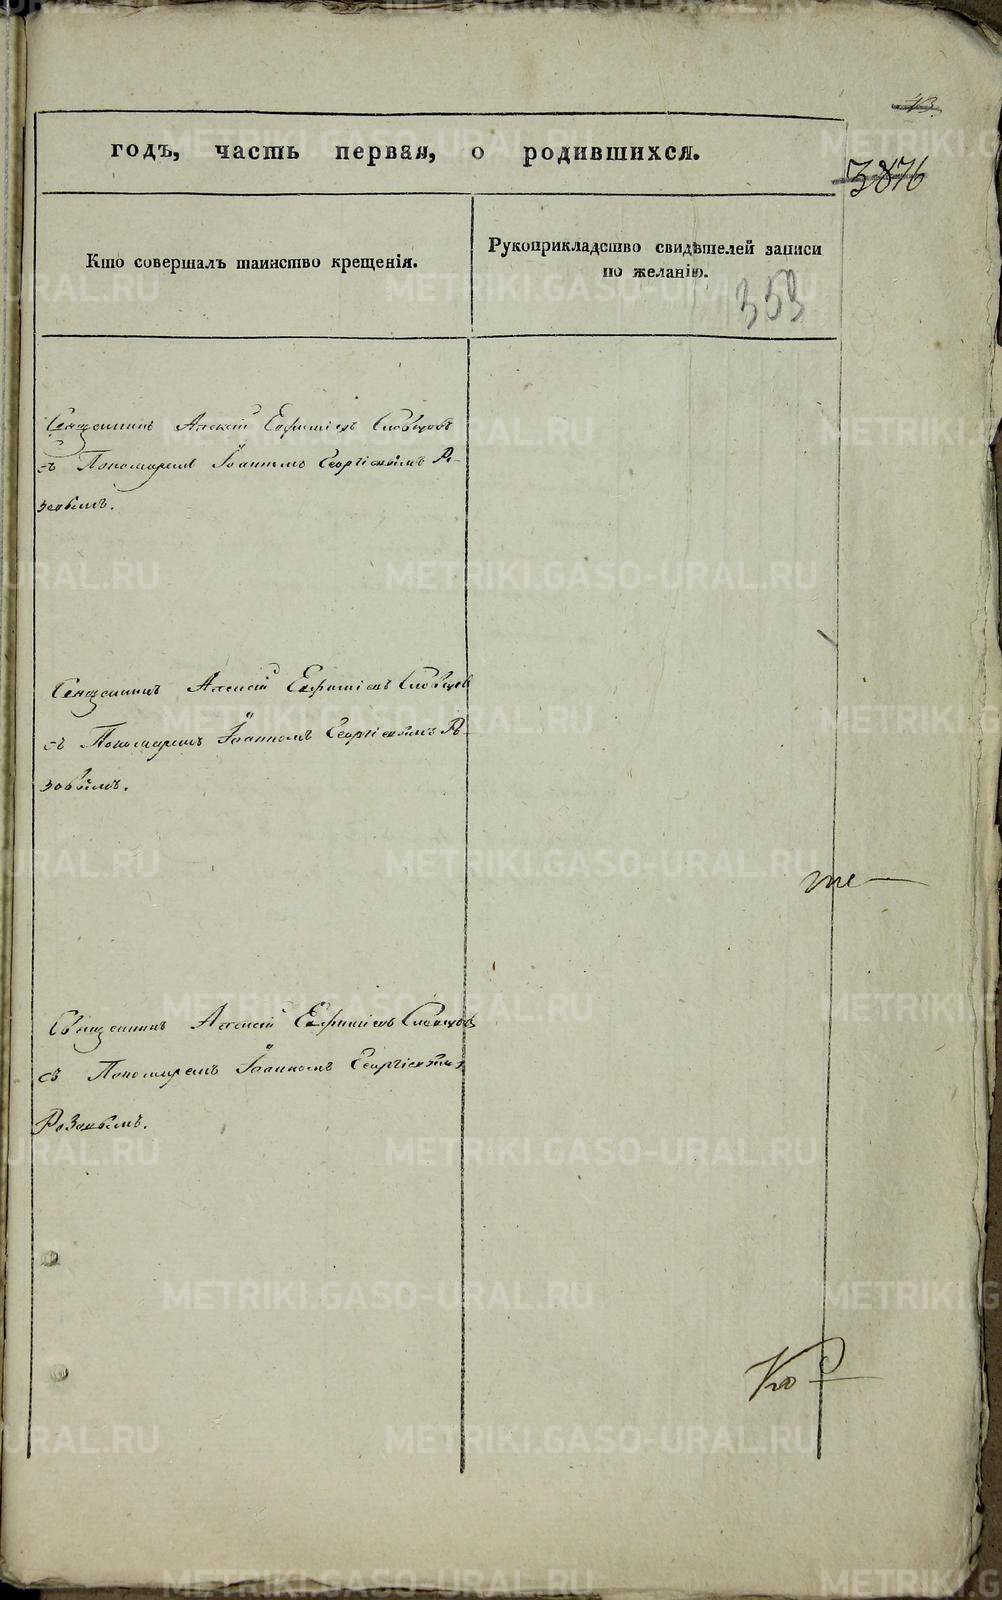 43.
годъ, часть первая, о родившихся.
3876
Кто совершалъ таинство крещенія.
Рукоприкладство свидѣтелей записи
по желанію.
353
Священникъ Алексій Евфиміевъ Словцовъ
съ Пономаремъ Іоанномъ Георгіевымъ Ро-
зовымъ.
Священникъ Алексій Евфиміевъ Словцовъ
съ Пономаремъ Іоанномъ Георгіевымъ Ро-
зовымъ.
Священникъ Алексій Евфиміевъ Словцовъ
съ Пономаремъ Іоанномъ Георгіевымъ
Розовымъ.
METRIKI.GASO-URAL.RU